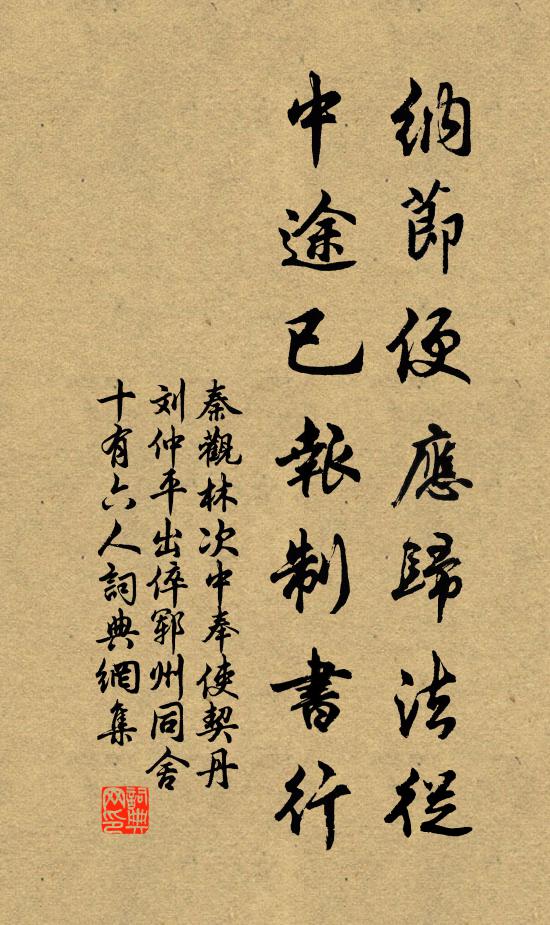 納節便應歸法從
中途已報制書行
秦觀林次中奉使契丹
刘仲平出倅鄆州同舍
十有六人詞典網集
詞典网印